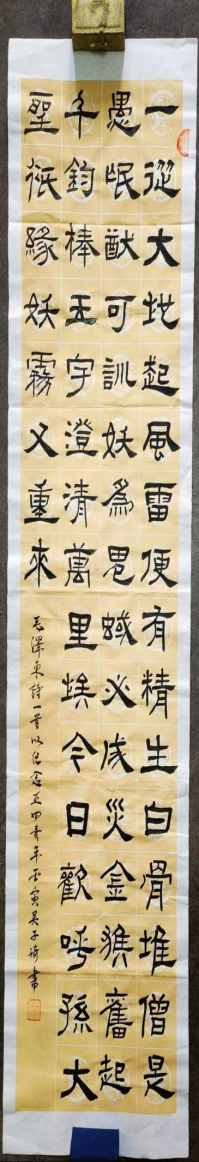 一從大地起風雷便有精生白骨堆僧是
愚氓猷可訓妖為鬼蜮必成災金猴奮起
千鈞棒玉宇澄清萬里埃今日歡呼孫大
聖衹緣妖霧又重來
毛澤東詩一首以紀念五四青年丙寅吳子書